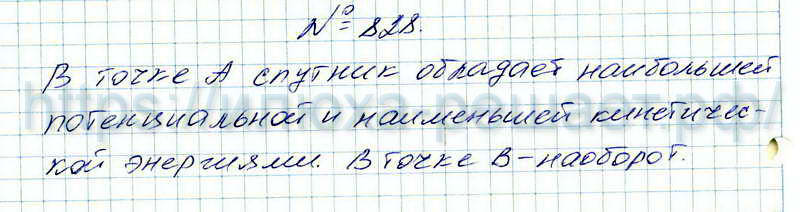 № 828.
В точке А спутник обладает наибольшей
потенциальной и наименьшей кинетичес-
кой энергиями. В точке В – наоборот.